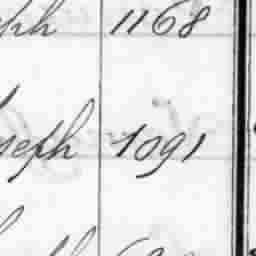 eph 1168
seph 1091